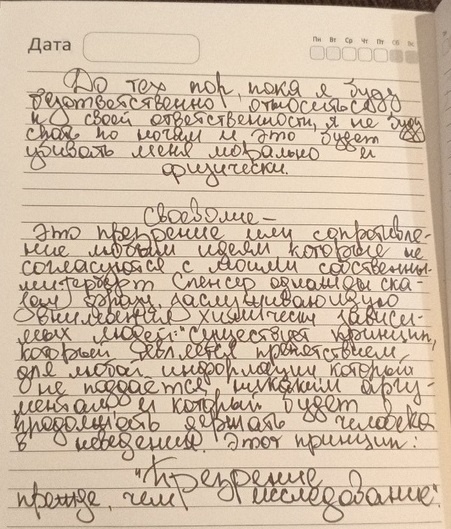 Дата
Пн Вт Ср Чт Пт Сб Вс
До тех пор, пока я буду
безответственно относиться
к своей ответственности, я не буду
спать по ночам и это будет
убивать меня морально и
физически.
Своеволие –
это презрение или сопротивле-
ние любым идеям которые не
согласуются с моими собственны-
ми. Герберт Спенсер однажды ска-
зал фразу, заслуживающую
внимания химически зависи-
мых людей: "существует принцип,
который является препятствием
для любой информации который
не поддается никаким аргу-
ментам и который будет
продолжать держать человека
в неведении. Этот принцип:
"Презрение
прежде, чем исследование".